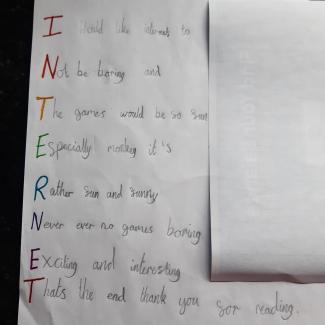 I Would like internet to
Not be boring and
The games would be so sun
Especially monkey it's
Rather sun and sunny
Never ever no games boring
Exciting and interesting
Thats the end thank you sor reading.